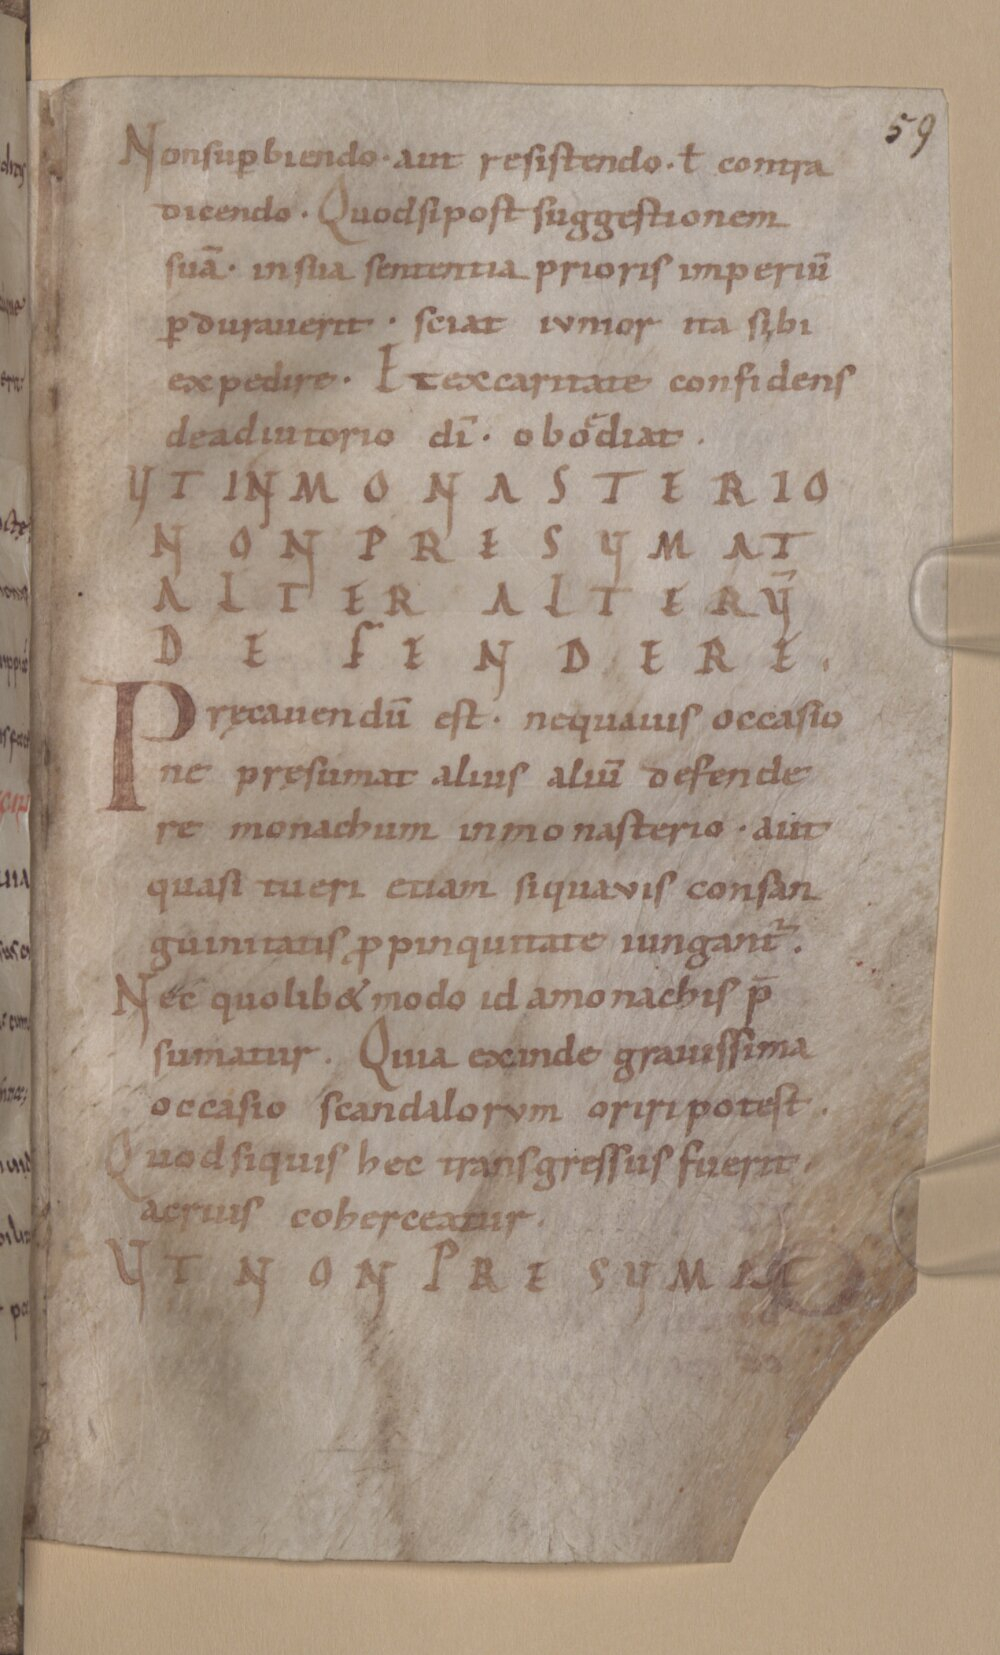 59
Nonsuꝑbiendo · aut resistendo · ł contra
dicendo · Quodsipost suggestionem
suā · insua sententia prioris imperiū
ꝑdurauerit · sciat iunior ita sibi
expedire · Et excaritate confidens
deadiutorio dī · oboediat .
VT IN MONASTERIO
NON PRESVMAT
ALTER ALTERV̄
DEFENDERE .
Pręcauendū est · nequauis occasio
ne pręsumat alius aliū defende
re monachum inmonasterio · aut
quasi tueri etiam siquavis consan
guinitatis ꝓpinquitate iungant᷑ .
Nec quolib& modo id amonachis p̄
sumatur . Quia exinde grauissima
occasio scandalorum oriripotest .
Quodsiquis hec transgressus fuerit
acrius coherceatur .
VT NON PRESVMAT